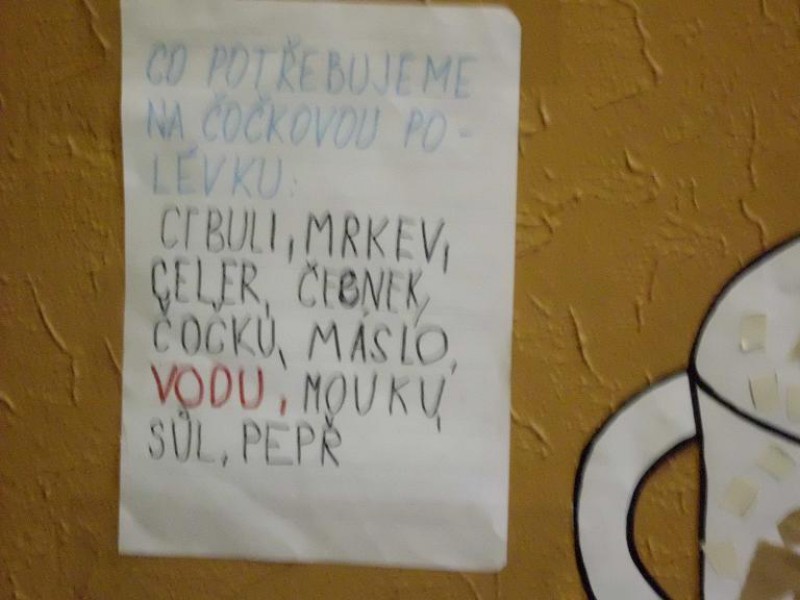 CO POTŘEBUJEME
NA ČOČKOVOU PO-
LÉVKU:
CIBULI, MRKEV,
CELER, ČESNEK,
ČOČKU, MÁSLO,
VODU, MOUKU,
SŮL, PEPŘ